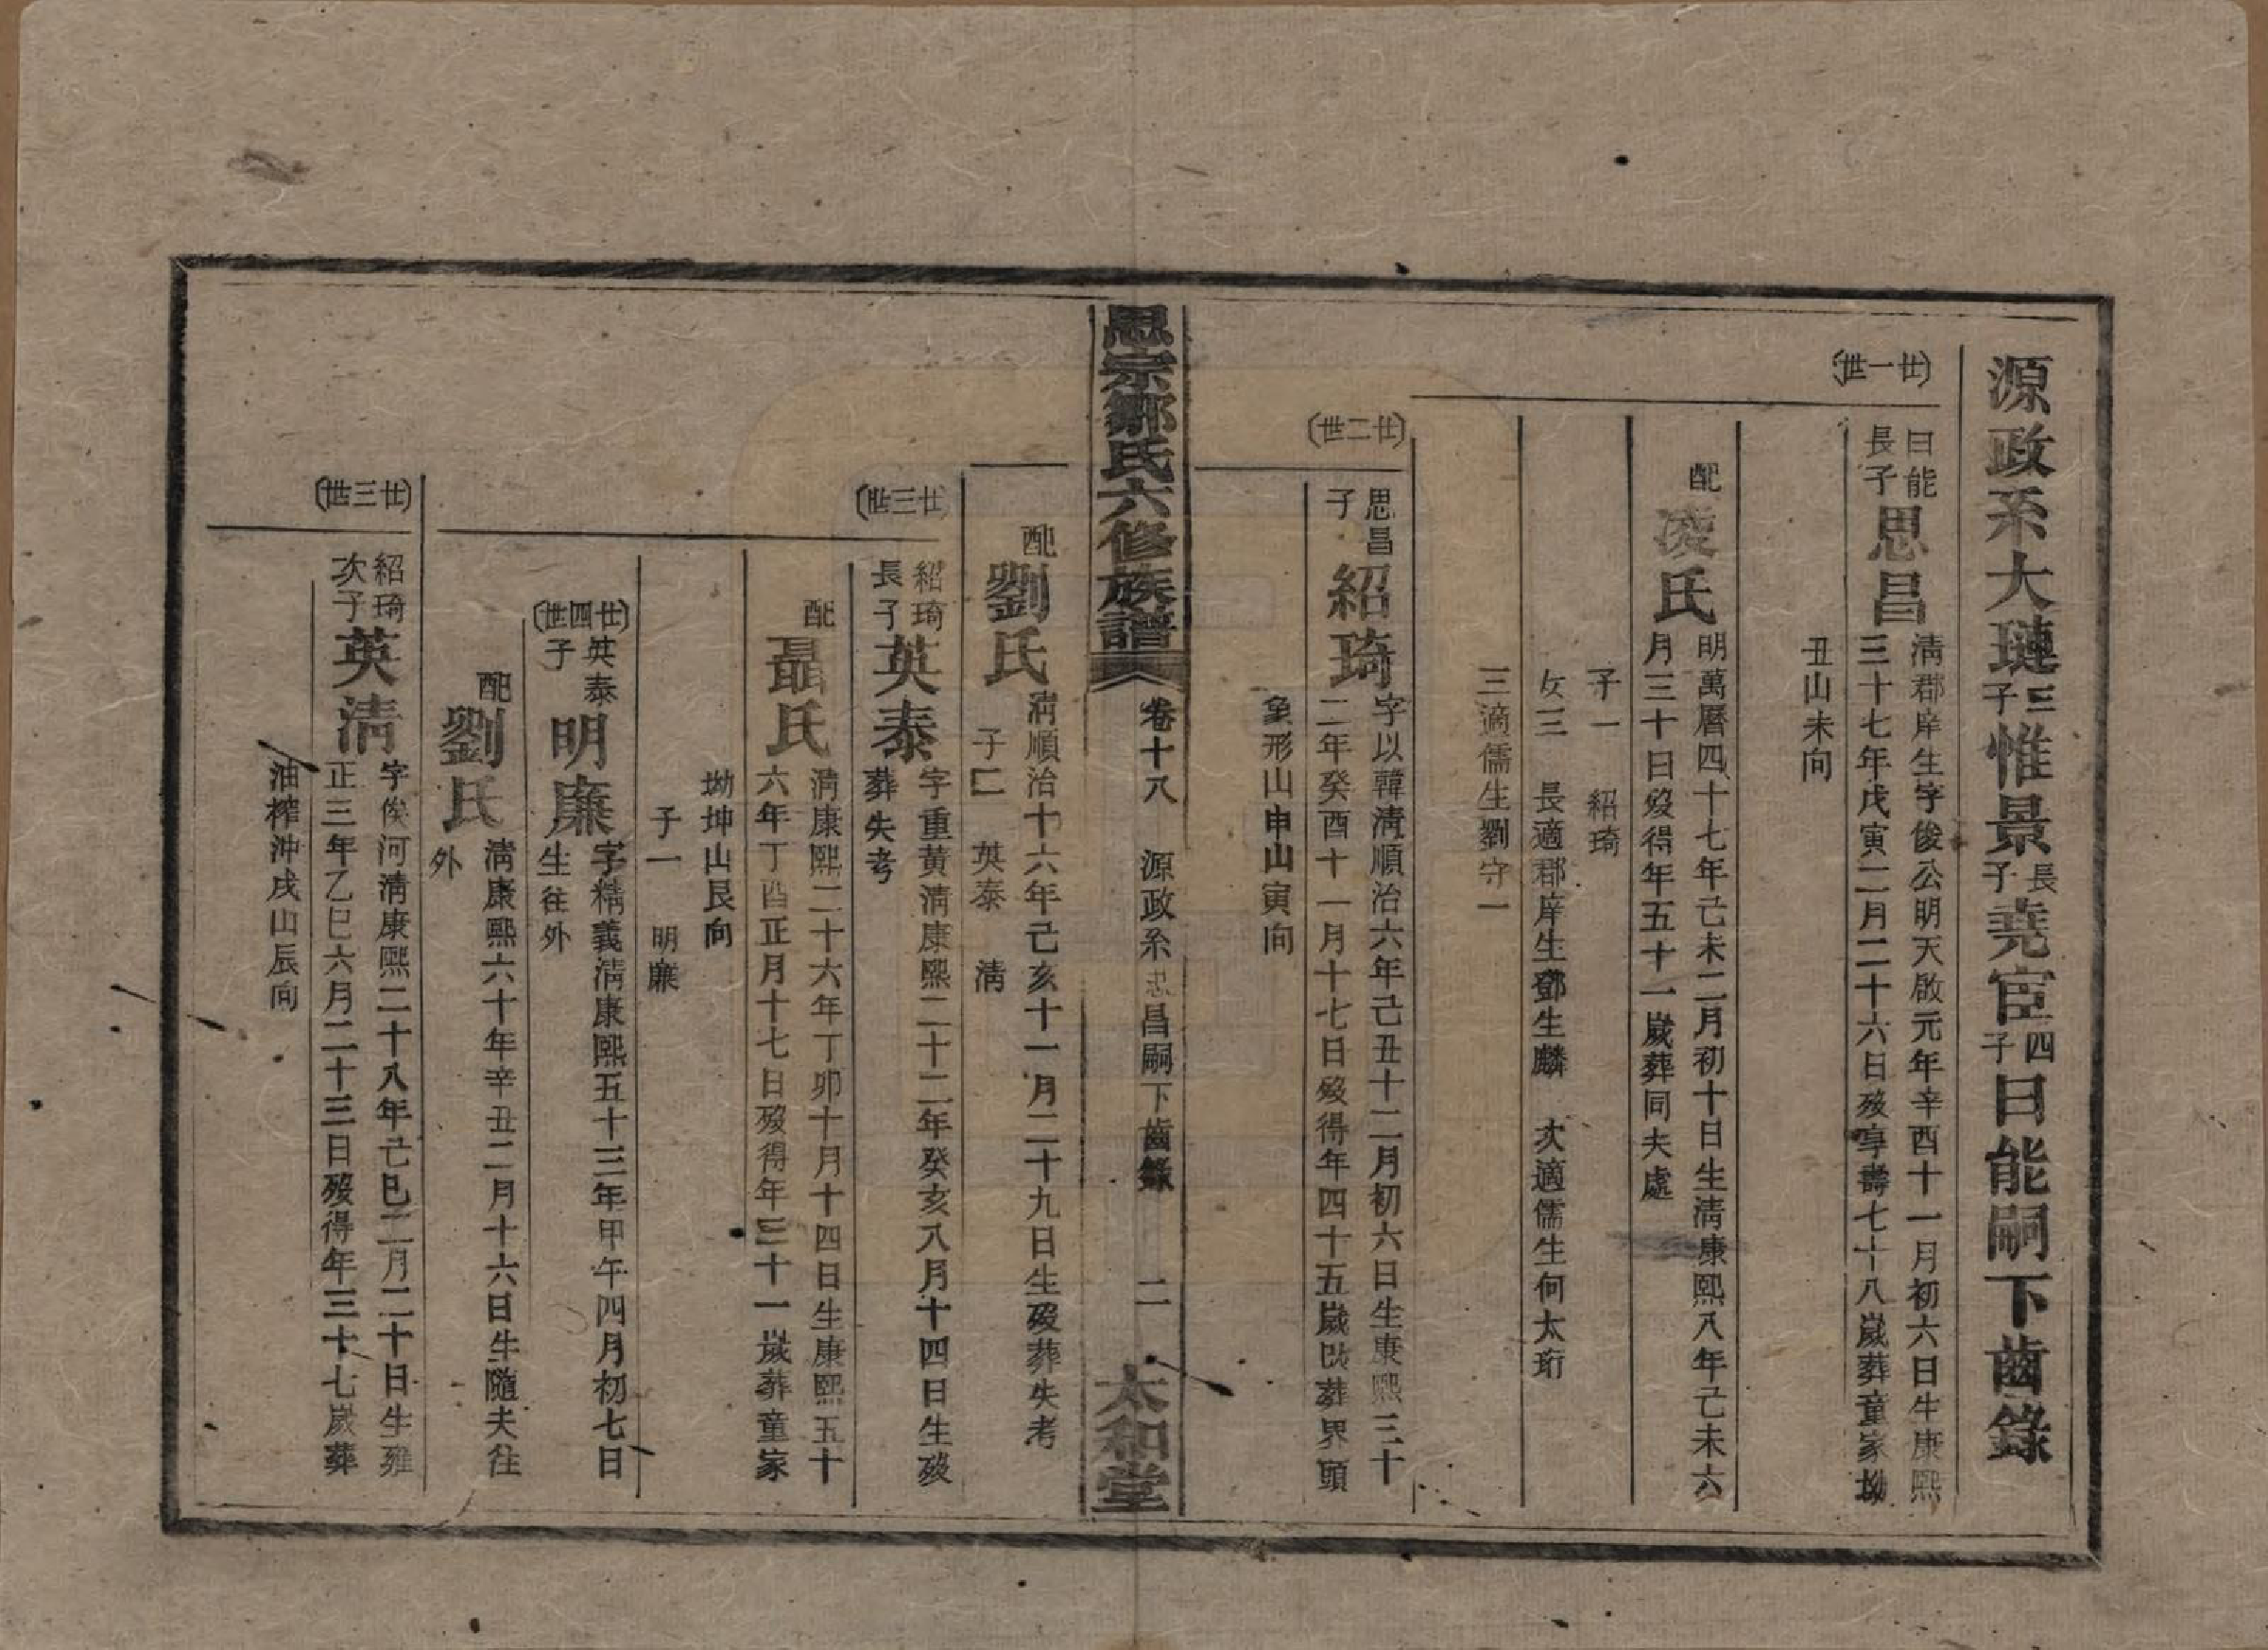 源政系大璉三子惟景長子堯宦四子曰能嗣下齒錄
廿一世
曰能長子思昌
清郡庠生字俊公明天啟元年辛酉十一月初六日生康熙
三十七年戊寅二月二十六日歿享壽七十八歲葬童家坳
丑山未向
配凌氏
明萬曆四十七年己未二月初十日生清康熙八年己未六
月三十日歿得年五十一歲葬同夫處
子一 紹琦
女三 長適郡庠生鄧生麟 次適儒生何太珩
三適儒生劉守一
廿二世
思昌子紹琦
字以韓清順治六年己丑十二月初六日生康熙三十
二年癸酉十一月十七日歿得年四十五歲改葬界頭
象形山申山寅向
思宗鄒氏六修族譜
卷十八 源政系思昌嗣下齒錄 二 太和堂
配劉氏
清順治十六年己亥十一月二十九日生歿葬失考
子 英泰 清
廿三世
紹琦長子英泰
字重黃清康熙二十二年癸亥八月十四日生歿
葬失考
配聶氏
清康熙二十六年丁卯十月十四日生康熙五十
六年丁酉正月十七日歿得年三十一歲葬童家
坳坤山艮向
子一 明廉
廿四世
英泰子明廉
字精義清康熙五十三年甲午四月初七日
生往外
配劉氏
清康熙六十年辛丑二月十六日生隨夫往
外
廿三世
紹琦次子英清
字俟河清康熙二十八年己巳二月二十日生雍
正三年乙巳六月二十三日歿得年三十七歲葬
油榨沖戌山辰向